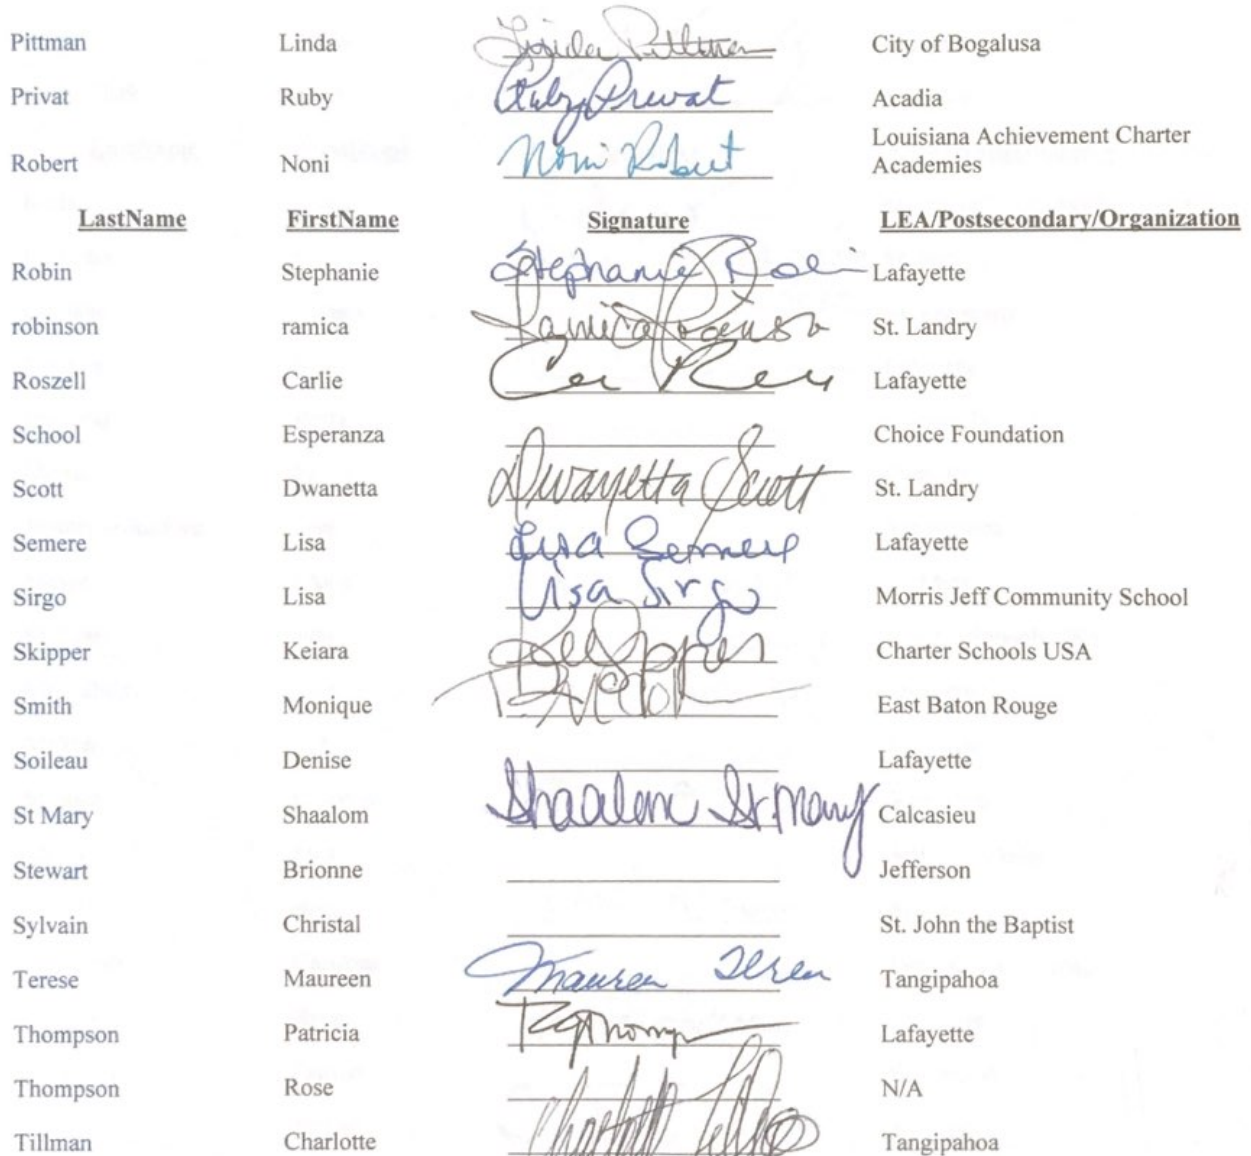 Pittman Linda Linda Pittman City of Bogalusa
Privat Ruby Ruby Privat Acadia
Robert Noni Noni Robert Louisiana Achievement Charter
Academies
LastName FirstName Signature LEA/Postsecondary/Organization
Robin Stephanie Stephanie Robin Lafayette
robinson ramica Ramica Robinson St. Landry
Roszell Carlie Lafayette
School Esperanza Choice Foundation
Scott Dwanetta Dwanetta Scott St. Landry
Semere Lisa Lisa Semere Lafayette
Sirgo Lisa Lisa Sirgo Morris Jeff Community School
Skipper Keiara Charter Schools USA
Smith Monique East Baton Rouge
Soileau Denise Lafayette
St Mary Shaalom Shaalom St. Mary Calcasieu
Stewart Brionne Jefferson
Sylvain Christal St. John the Baptist
Terese Maureen Maureen Terese Tangipahoa
Thompson Patricia Lafayette
Thompson Rose N/A
Tillman Charlotte Tangipahoa